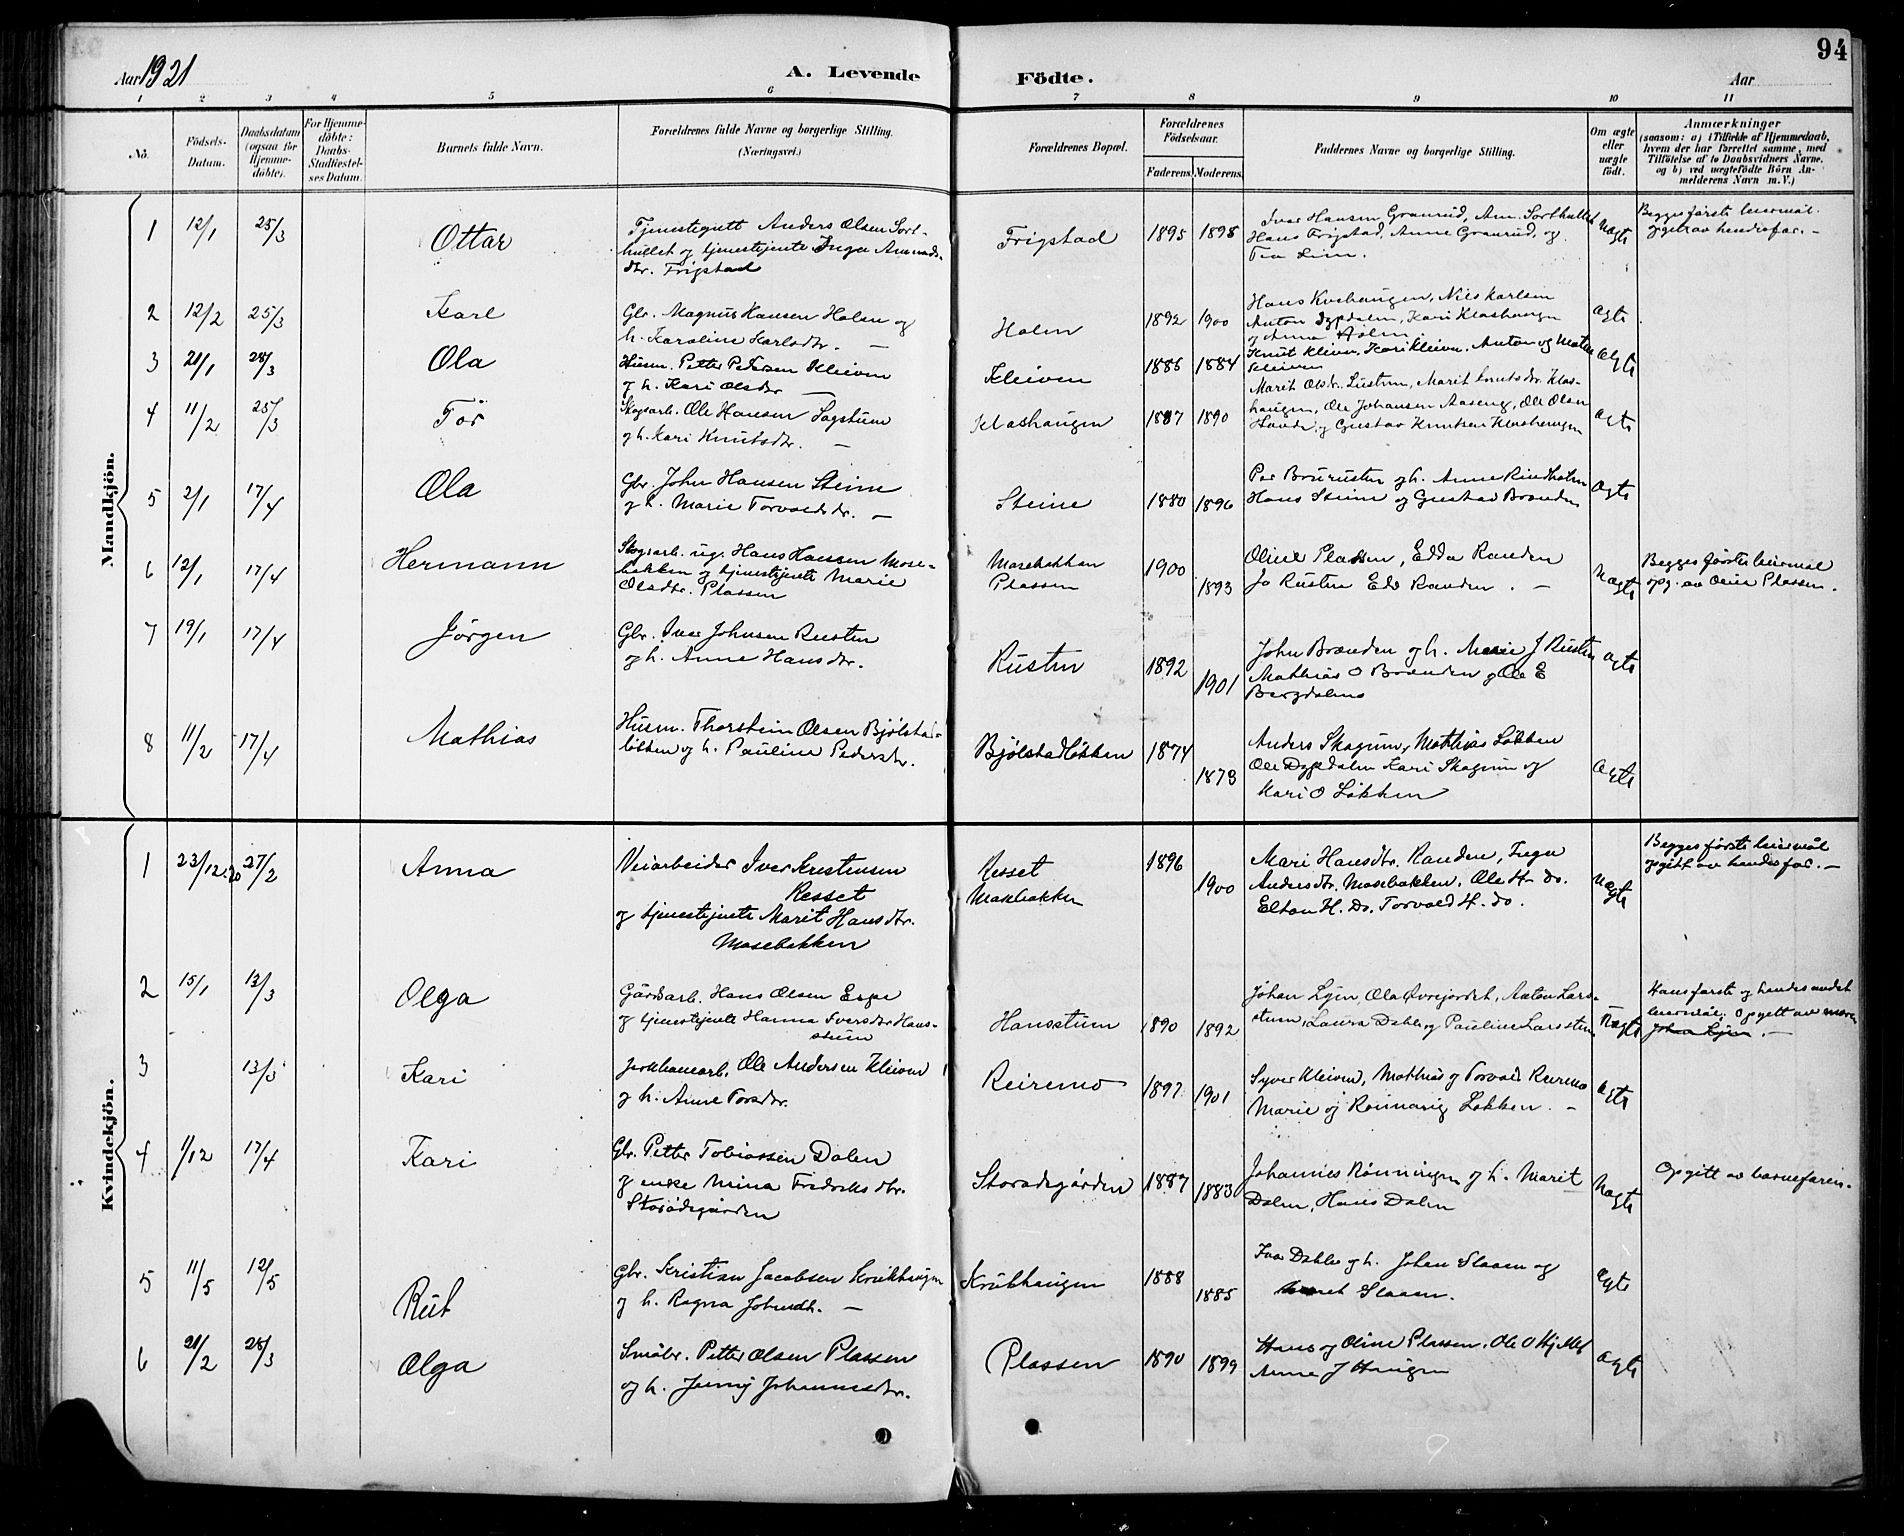 Aar 1921
A. Levende
Födte.
Aar
94
1 2 3 4 5 6 7 8 9 10 11
No.
Födsels-Datum.
Daabsdatum (ogsaa for Hjemme-döbte).
For Hjemme-döbte: Daabs-Stadfæstel-ses Datum.
Barnets fulde Navn.
Forældrenes fulde Navne og borgerlige Stilling. (Næringsvei.)
Forældrenes Bopæl.
Forældrenes Födselsaar.
Faderens. Moderens.
Faddernes Navne og borgerlige Stilling.
Om ægte eller uægte födt.
Anmærkninger
(saasom: a) i Tilfælde af Hjemmedaab, hvem der har forrettet samme, med Tilföielse af to Daabsvidners Navne, og b) ved uægtefödte Börn An-melderens Navn m. V.)
Mandkjön.
1 12/1 25/3 Ottar
Tjenestegutt Anders Olsen Sort-
hullet og tjenestejente Inga Amunds-
dtr. Frigstad
Frigstad 1895 1898
Iver Hansen Granrud, Am. Sorthullet
Hans Frigstad, Anne Granrud, og
Uægte
Begges første leiermål.
opgit av hendes far. –
2 12/2 25/3 Karl
Gbr. Magnus Hansen Holm og
h. Karoline Karlsdtr. –
Holm 1892 1900
Hans Kvehaugen, Nils Karlsen
Anton Dypdalen, Kari Klashaugen
og Anna Holm
Ægte
3 21/1 28/3 Ola
Husm. Petter Pedersen Kleiven
og h. Kari Olsdtr –
Kleiven 1886 1884
Knut Kleiven, Kari Kleiven, Anton og
Kleiven
Ægte
4 11/2 25/3 Tor
Skogsarb. Ole Hansen Sagstuen
og h. Kari Knutsdtr. –
Klashaugen 1887 1890
Marit Olsdtr. Lustuen, Marit Knutsdtr. Klas-
haugen, Ole Johansen Aaseng, Ole Olsen
og Gustav Knutsen Klashaugen
Ægte
5 2/1 17/4 Ola
Gbr. John Hansen Steine
og h. Marie Torvaldsdtr. –
Steine 1880 1896
Per Brurusten og h. Anne Rindholm
Hans Steine og Gustav Brænden
Ægte
6 12/1 17/4 Hermann
Skogsarb. ug. Hans Hansen Mose-
bakken og tjenestejente Marie
Olsdtr. Plassen
Mosebakken
Plassen
1900 1893
Oline Plassen, Edda Randen
Jo Rusten Edv Randen. –
Uægte
Begges første leiermål
opg. av Oline Plassen.
7 19/1 17/4 Jørgen
Gbr. Iver Johnsen Rusten
og h. Anne Hansdtr.
Rusten 1892 1901
John Brænden og h. Marie J Rusten
Mathias O Brænden og Ole E
Bergdalens
Ægte
8 11/2 17/4 Mathias
Husm. Thorstein Olsen Bjølstad-
løkken og h. Pauline Pedersdtr.
Bjølstadløkken 1874 1873
Anders Skogum, Mathias Løkken
Ole Dypdalen Kari Skogum og
Mari O Løkken
Ægte
Kvindekjön.
1 23/12.20 27/2 Anna
Veiarbeider Iver Kristensen
Resset
og tjenestejente Marit Hansdtr.
Mosebakken
Resset
Mosebakken
1896 1900
Mari Hansdtr. Randen, Inga
Andersdtr. Mosebakken. Ole H. do.
H. Do. Torvald H. do.
Uægte
Begges første leiermål
opgitt av hendes far. –
2 15/1 13/3 Olga
Gårdsarb. Hans Olsen Espe
og tjenestejente Hanna Iversdtr Hans-
stuen
Hansstuen 1890 1892
Johan Lyen, Ola Øvrejordet, Anton Lars-
stuen, Laura Dahle og Pauline Larsstuen
Uægte
Hans første og hendes andet
leiermål. Opgitt av moren
Johan Lyen. –
3 13/3 Kari
Jernbanearb. Ole Andersen Kleiven
og h. Anne Torsdtr.
Reiremo 1897 1901
Syver Kleiven, Mathias og Torvald Reiremo
Marie og Rønnaug Løkken. –
Ægte
4 1/12 17/4 Kari
Gbr. Petter Tobiassen Dalen
og enke Mina Fredriksdtr.
Storødegården
Storødegården 1887 1883
Johannes Rønningen og h. Marit
Dalen, Hans Dalen
Uægte
Opgitt av barnefaren.
5 11/5 12/5 Rut
Gbr. Kristian Jacobsen Krukhaugen
og h. Ragna Johnsdtr. –
Krukhaugen 1888 1885
Ivar Dahle og h. Johan Slaaen og
Slaaen.
Ægte
6 21/2 28/3 Olga
Småbr. Petter Olsen Plassen
og h. Jenny Johannesdtr.
Plassen 1890 1899
Hans og Oline Plassen. Ole O
Anne J Haugen
Ægte